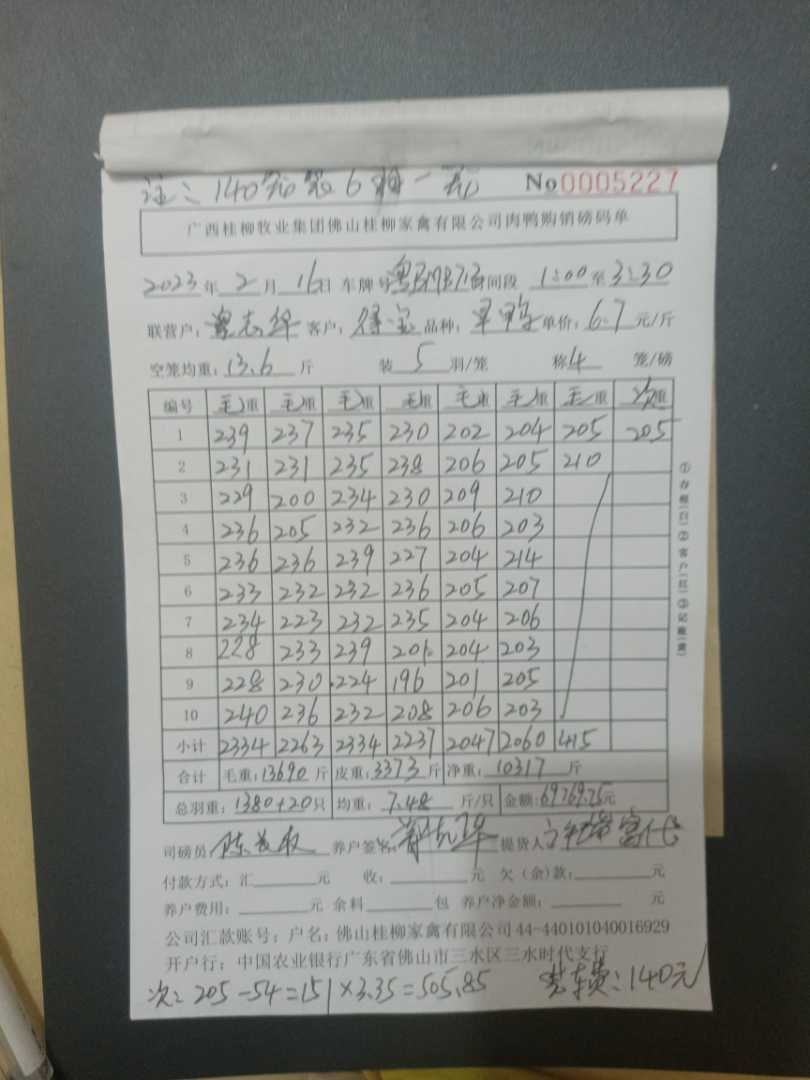 注：140 6 一 No 0005227
广西桂柳牧业集团佛山桂柳家禽有限公司肉鸭购销磅码单
2023年 2月 16日 车牌号 时间段 1:00 至 3:30
联营户： 志华 客户： 品种： 鸭 单价：6.7 元/斤
空笼均重：13.6 斤 装 5 羽/笼 称 4 笼/磅
编号 毛重 毛重 毛重 毛重 毛重 毛重 毛重 次重
1 239 237 235 230 202 204 205 205
2 231 231 235 238 206 205 210
3 229 200 234 230 209 210
4 236 205 232 236 206 203
5 236 236 239 227 204 214
6 233 232 232 236 205 207
7 234 223 232 235 204 206
8 228 233 239 201 204 203
9 228 230 224 196 201 205
10 240 236 232 208 206 203
小计 2334 2263 2334 2237 2047 2060 415
合计 毛重：13690 斤 皮重：3373 斤 净重：10317 斤
总羽重：1380+20 只 均重：7.48 斤/只 金额：69769.75元
司磅员 陈 养户签名： 华 提货人 富代
付款方式：汇 元 收： 元 欠（余）款： 元
养户费用： 元 余料 包 养户净金额： 元
公司汇款账号：户名：佛山桂柳家禽有限公司44-440101040016929
开户行：中国农业银行广东省佛山市三水区三水时代支行
次：205-54=151×3.35=505.85 车费：140元
①存根(白)②客户(红)③记账(黄)